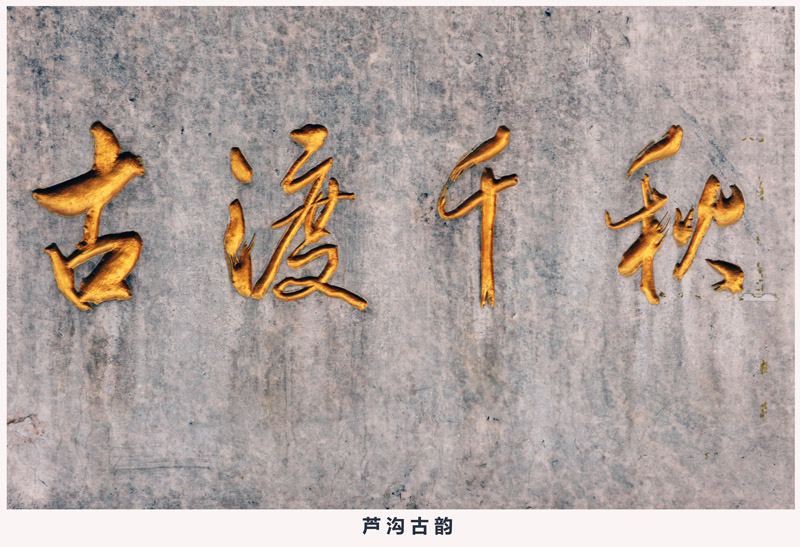 古渡千秋
芦沟古韵